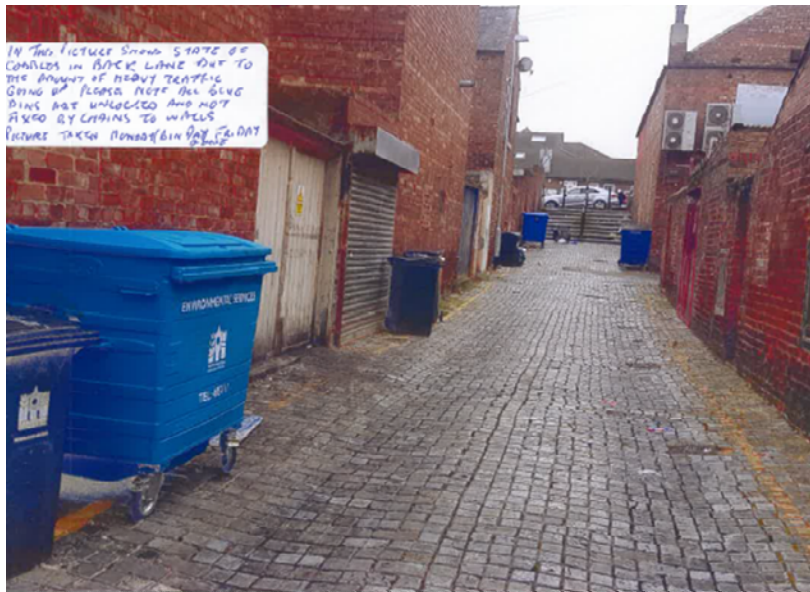 IN THIS PICTURE SHOWS STATE OF
COBBLES IN BACK LANE DUE TO
THE AMOUNT OF HEAVY TRAFFIC
GOING UP PLEASE NOTE ALL BLUE
BINS ARE UNLOCKED AND NOT
FIXED BY CHAINS TO WALLS
PICTURE TAKEN BIN DAY FRIDAY
ENVIRONMENTAL SERVICES
TEL